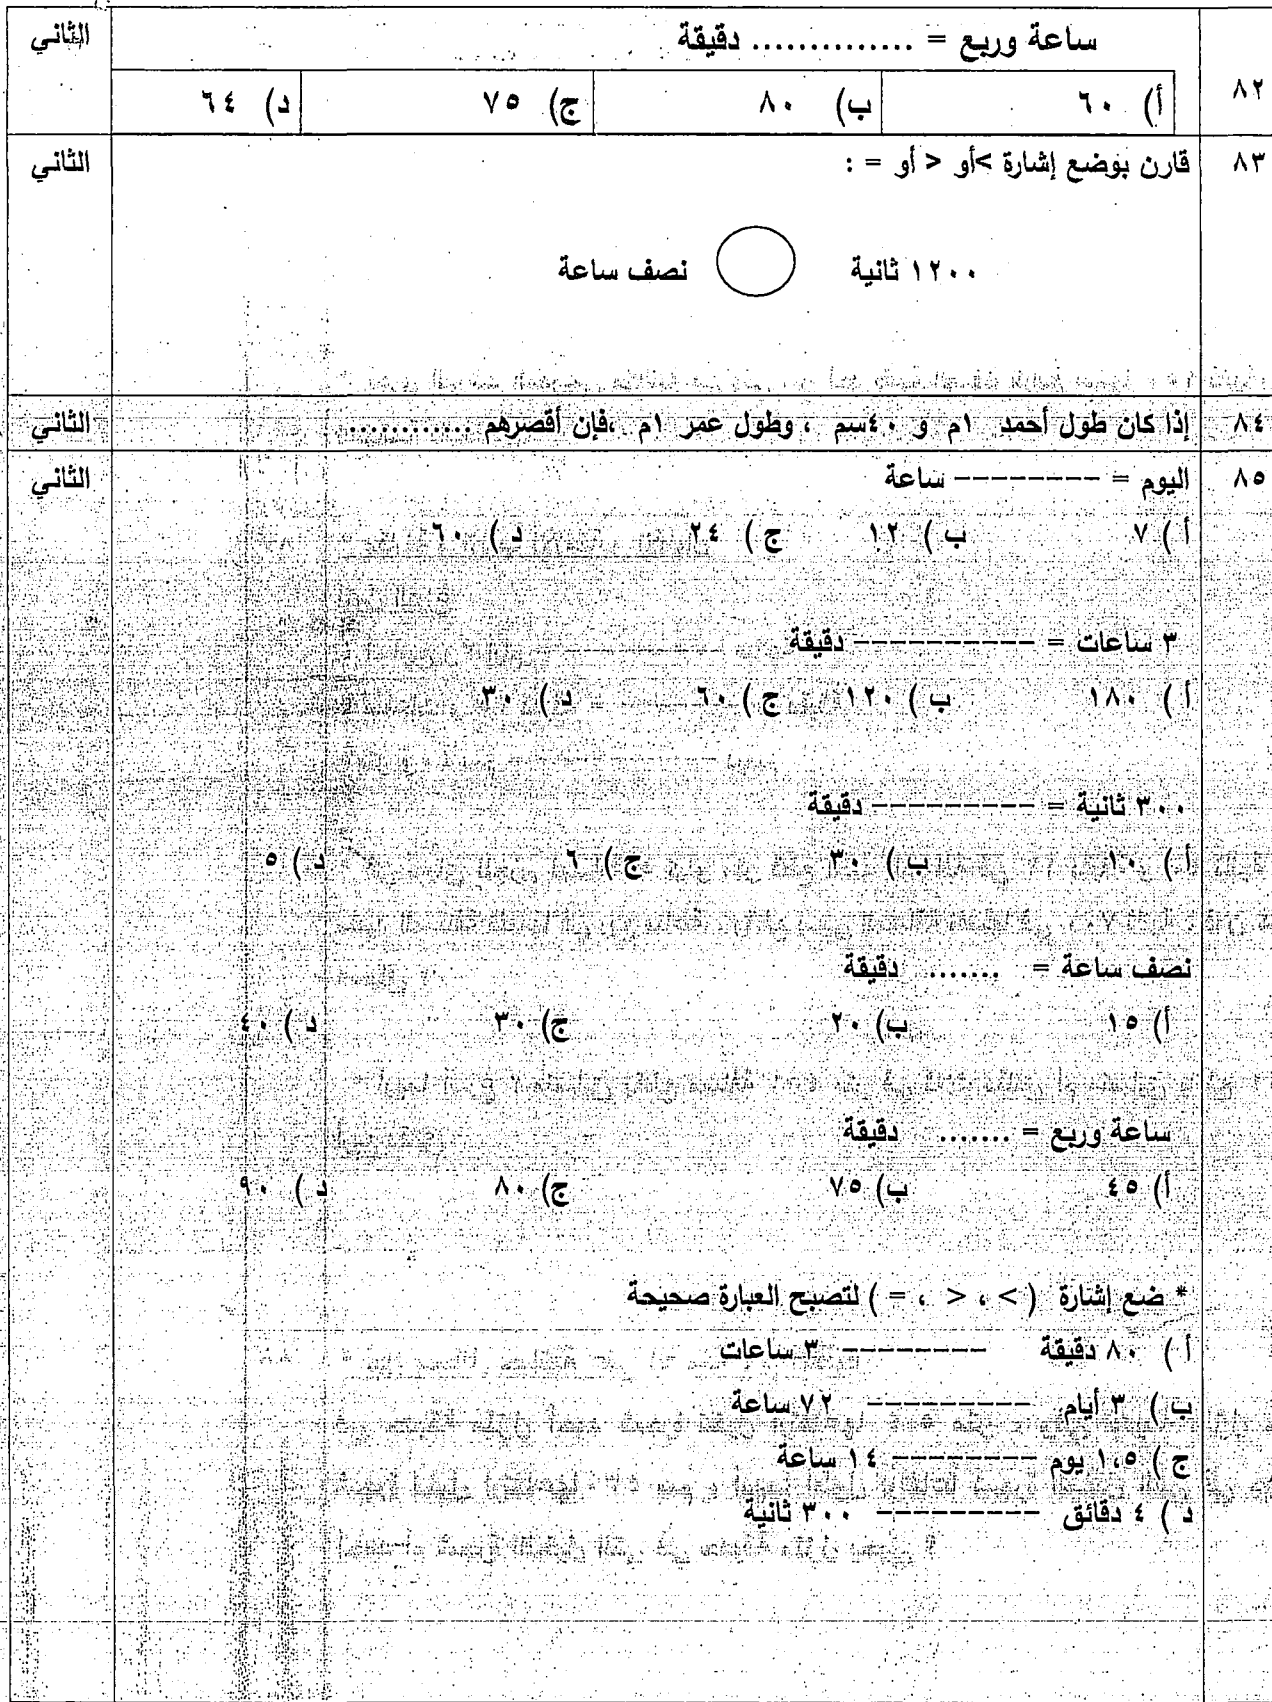 ساعة وربع = .............. دقيقة
الثاني
٨٢
أ) ٦٠
ب) ٨٠
ج) ٧٥
د) ٦٤
٨٣
قارن بوضع إشارة >أو < أو = :
الثاني
١٢٠٠ ثانية
نصف ساعة
٨٤
إذا كان طول أحمد ١م و ٤٠سم ، وطول عمر ١م ،فإن أقصرهم ............
الثاني
٨٥
اليوم = --------- ساعة
الثاني
أ ) ٧ ب ) ١٢ ج ) ٢٤ د ) ٦٠
٣ ساعات = ---------- دقيقة
أ ) ١٨٠ ب ) ١٢٠ ج ) ٦٠ د ) ٣٠
٣٠٠ ثانية = ---------- دقيقة
أ ) ١٠ ب ) ٣٠ ج ) ٦ د ) ٥
نصف ساعة = ....... دقيقة
أ) ١٥ ب) ٢٠ ج) ٣٠ د ) ٤٠
ساعة وربع = ....... دقيقة
أ) ٤٥ ب) ٧٥ ج) ٨٠ د ) ٩٠
* ضع إشارة ( > ، < ، = ) لتصبح العبارة صحيحة
أ ) ٨٠ دقيقة --------- ٣ ساعات
ب ) ٣ أيام ---------- ٧٢ ساعة
ج ) ١،٥ يوم --------- ١٤ ساعة
د ) ٤ دقائق ---------- ٣٠٠ ثانية